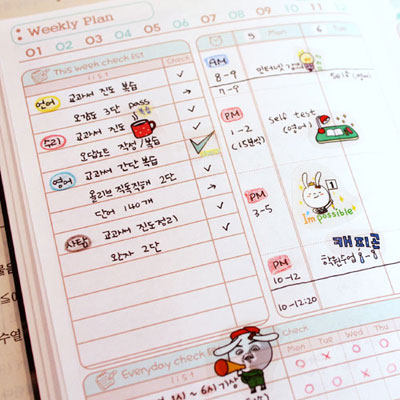 Weekly Plan
01 02 03 04 05 06 07 08 09 10
This week check list
list Check
언어 교과서 진도 복습 ✓
오감도 3단 pass →
수리 교과서 진도 ✓
오답노트 작성/복습
영어 교과서 간단 복습 ✓
올리브 직독직해 2단 →
단어 140개 ✓
사탐 교과서 진도정리 ✓
완자 2단
5 Mon 6 Tue
AM
8-9
7-9
self (영어)
PM
1-2 self test
(15분씩) (영어)
1
PM
3-5
Impossible
캐피콘
PM 학원수업 8-9
10-12
10-12:20
Everyday check list
list
Check
Mon Tue Wed Thu
6시 기상
○ × ○ ○
수열